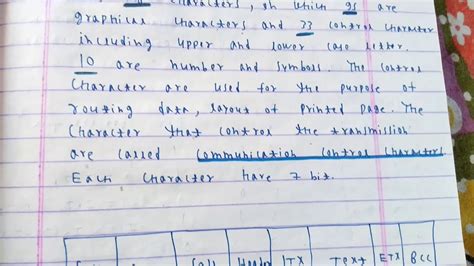 characters, in which 95 are
graphical characters and 33 control character
including upper and lower case letter.
10 are number and symbols. The control
character are used for the purpose of
routing data, layout of printed page. The
character that control the transmission
are called communication control characters
Each character have 7 bit.
Header ITX Text ETX BCC